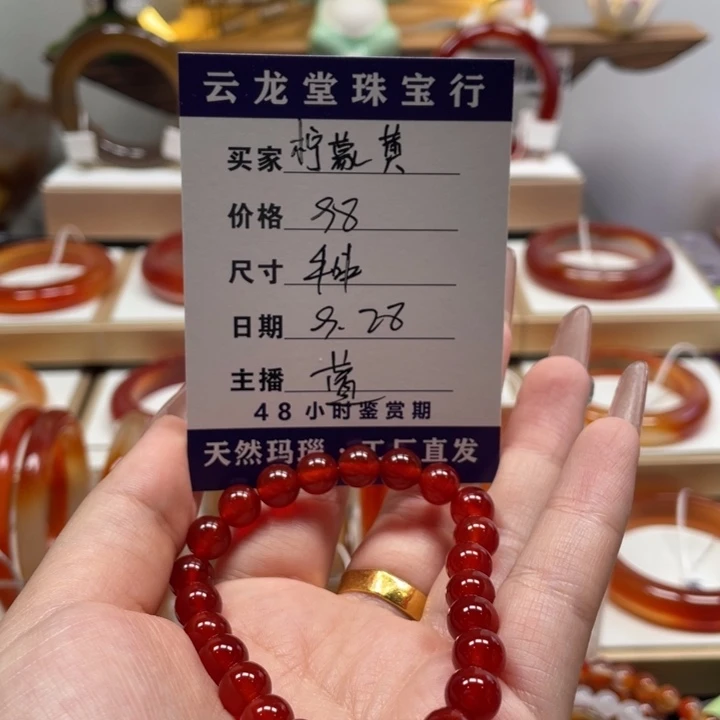 云龙堂珠宝行
买家 柠檬黄
价格 98
尺寸 手串
日期 9.28
主播
48小时鉴赏期
天然玛瑙·工厂直发